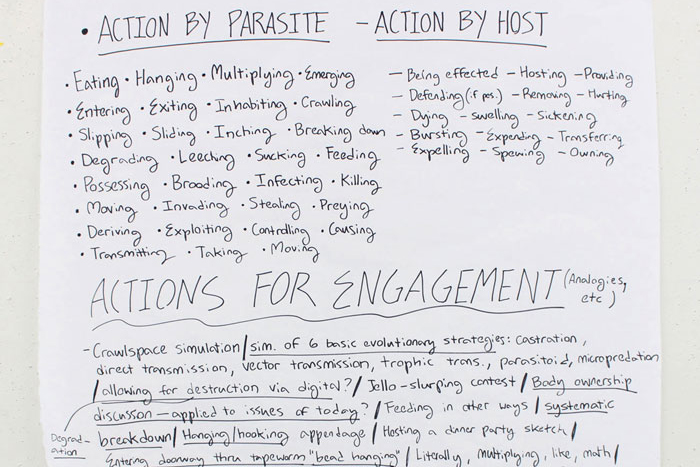 • ACTION BY PARASITE – ACTION BY HOST
• Eating • Hanging • Multiplying • Emerging
• Entering • Exiting • Inhabiting • Crawling
• Slipping • Sliding • Inching • Breaking down
• Degrading • Leeching • Sucking • Feeding
• Possessing • Brooding • Infecting • Killing
• Moving • Invading • Stealing • Preying
• Deriving • Exploiting • Controlling • Causing
• Transmitting • Taking • Moving
– Being effected – Hosting – Providing
– Defending (if pos.) – Removing – Hurting
– Dying – Swelling – Sickening
– Bursting – Expending – Transferring
– Expelling – Spewing – Owning
ACTIONS FOR ENGAGEMENT (Analogies, etc)
– Crawlspace simulation / sim. of 6 basic evolutionary strategies: castration,
direct transmission, vector transmission, trophic trans., parasitoid, micropredation
/ allowing for destruction via digital? / Jello-slurping contest / Body ownership
discusson – applied to issues of today? / Feeding in other ways / systematic
Degrad-
ation
breakdown / Hanging/hooking appendage / Hosting a dinner party sketch /
Entering doorway thru tapeworm "bead hanging" / Literally, multiplying, like, math /